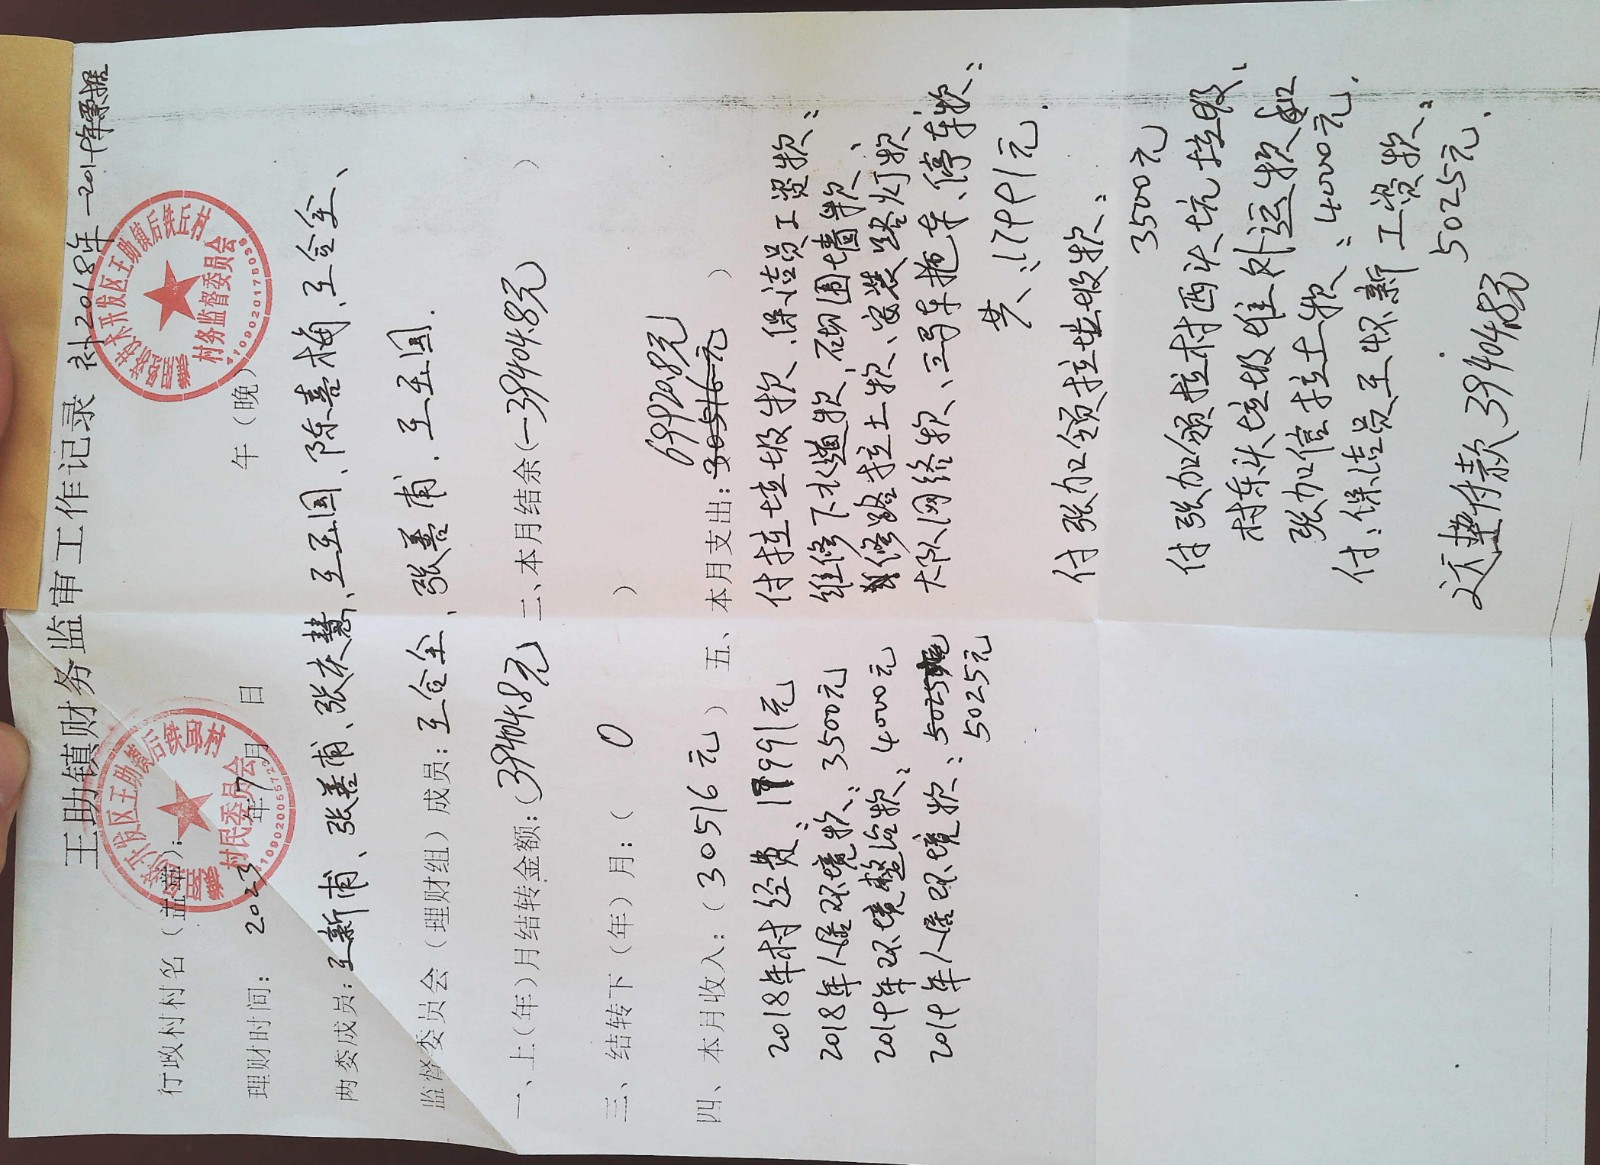 王助镇财务监审工作记录 补2018年—2019年票据
行政村村名（盖章）：
理财时间： 2023年7月 日 午（晚）
两委成员：王新甫、张善甫、张庆慧、王玉国、陈喜梅、王合全、
监督委员会（理财组）成员：王合全、张善甫、王玉国.
一、上（年）月结转金额：(39404.8元) 二、本月结余(-39404.8元 )
三、结转下（年）月：( 0 )
四、本月收入：（30516元） 五、本月支出：30516元
69920.8元
2018年村经费：17991元
2018年人居环境款：3500元
2019年环境整治款：4000元
2019年人居环境款：5025
5025元
付拉垃圾款、保洁员工资款：
维修下水道款、砌围墙款、
修路拉土款、安装路灯款
大队网络款、三马车拖车、停车款：
共：17991元.
付张加领拉垃圾款：
3500元
付张加领拉村西头坑垃圾、
村东头垃圾堆外运款和
张加信拉土款：4000元.
付：保洁员王怀新工资款：
5025元.
欠垫付款39404.8元
村务监督委员会
村民委员会